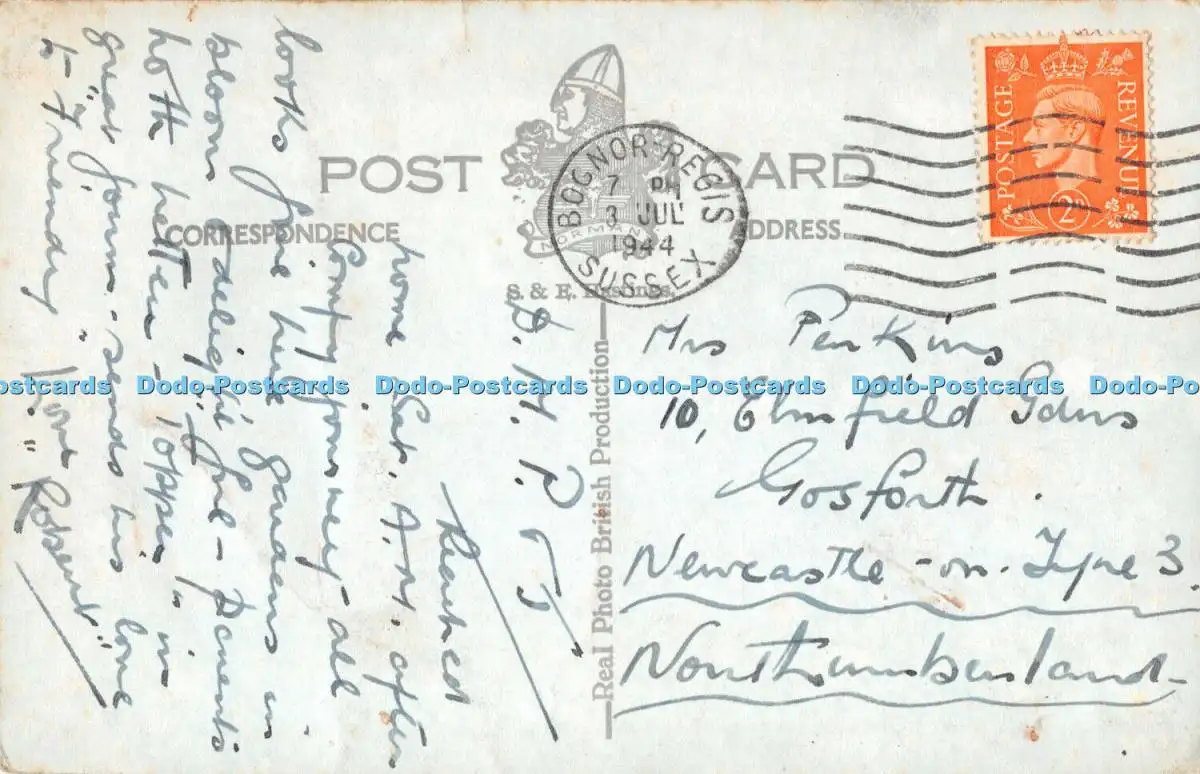 POST CARD
CORRESPONDENCE
ADDRESS
NORMAN
S. & E. Hastings
BOGNOR REGIS
7 PM
3 JUL
1944
SUSSEX
POSTAGE
REVENUE
2D
Real Photo British Production
Mrs Perkins
10, Elmfield Gdns
Gosforth.
Newcastle-on-Tyne 3
Northumberland
D. M. P.
Reached
home Sat. A.M. after
Comfy journey - all
looks fine here gardens in
bloom & fine - Parents
both better - "Topper" in
great form - sends his love
to "Friendly"
Love
Dodo-Postcards Dodo-Postcards Dodo-Postcards Dodo-Postcards Dodo-Postcards Dodo-Postcards